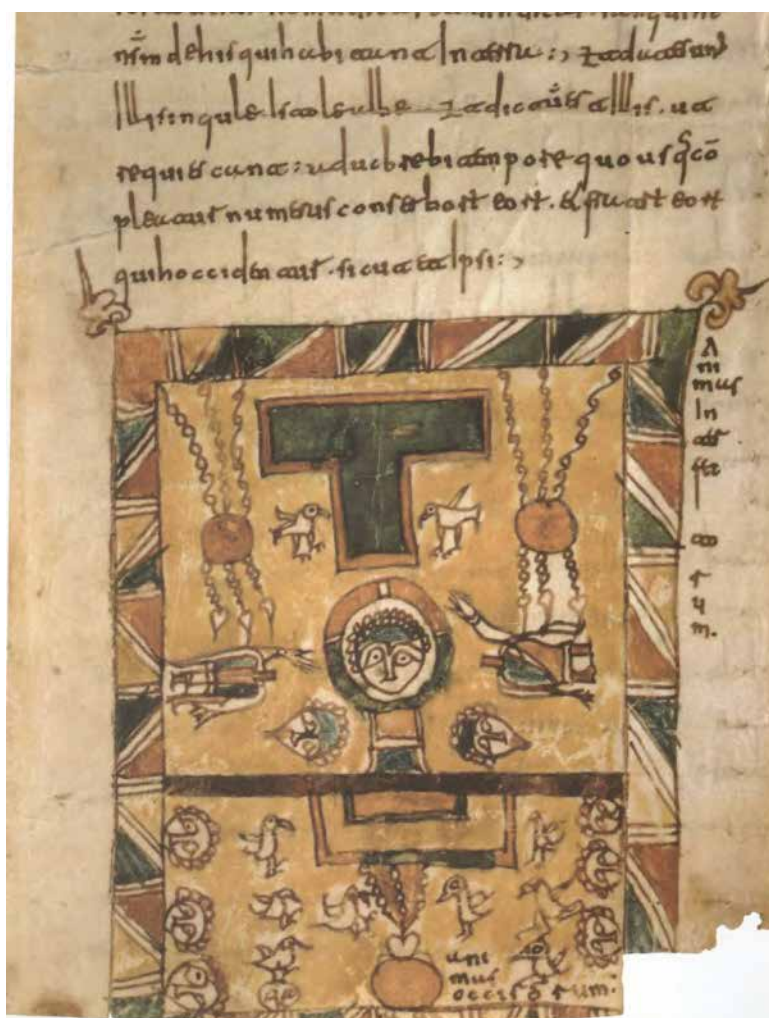 nr̄m de his qui habitant In terra :, Et date sunt
Illis singule stole albe Et dictum est Illis. ut
requiescant adhuc brebi tempore quousq cō
pleatur numerus conserborum eorum. et fratrum eorum
qui hoccidentur. sicut et ipsi :,
A
ni
mas
In
ter
fec
to
r
u
m.
ani
mas
occisorum.